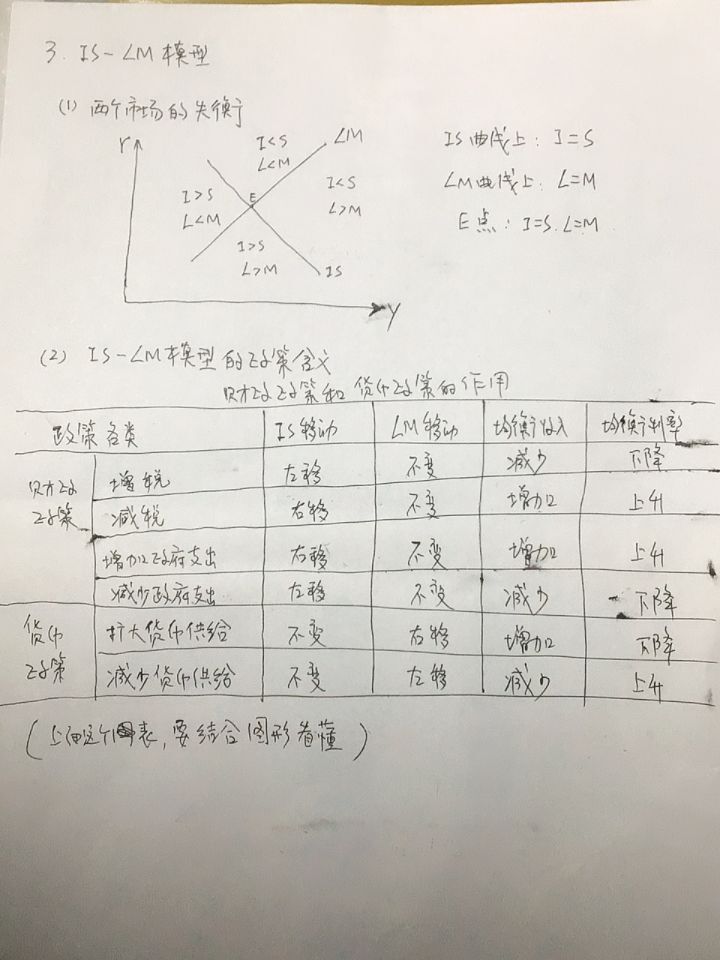 3. IS-LM模型
(1) 两个市场的失衡
r
I<S
L<M
LM
I>S
L<M
E
I<S
L>M
I>S
L>M
IS
y
IS曲线上: I=S
LM曲线上: L=M
E点: I=S. L=M
(2) IS-LM模型的政策含义
财政政策和货币政策的作用
政策各类 IS移动 LM移动 均衡收入 均衡利率
财政政策 增税 左移 不变 减少 下降
减税 右移 不变 增加 上升
增加政府支出 右移 不变 增加 上升
减少政府支出 左移 不变 减少 下降
货币政策 扩大货币供给 不变 右移 增加 下降
减少货币供给 不变 左移 减少 上升
(上面这个图表, 要结合图形看懂)